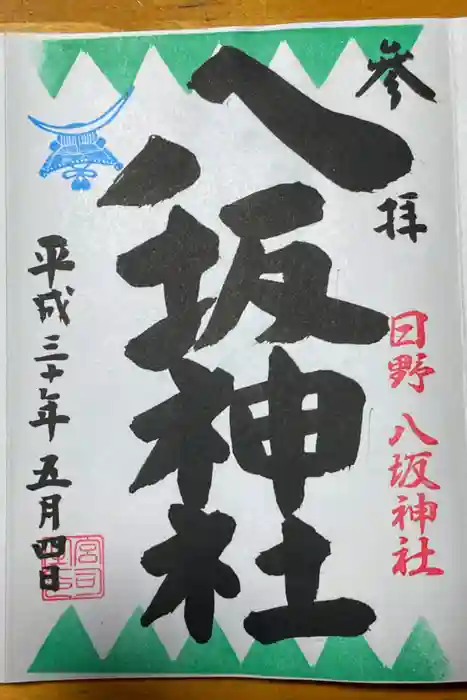 參拝
日野八坂神社
八坂神社
平成三十年五月四日